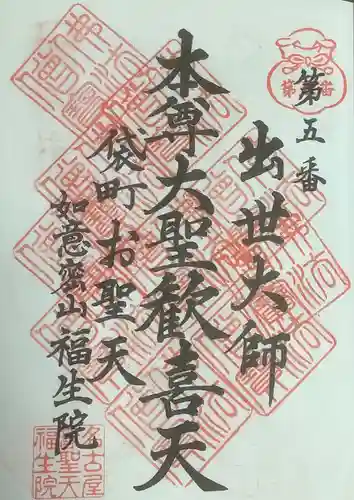 第五番
出世大師
本尊大聖歓喜天
袋町お聖天
如意蜜山福生院
名古屋
聖天
福生院